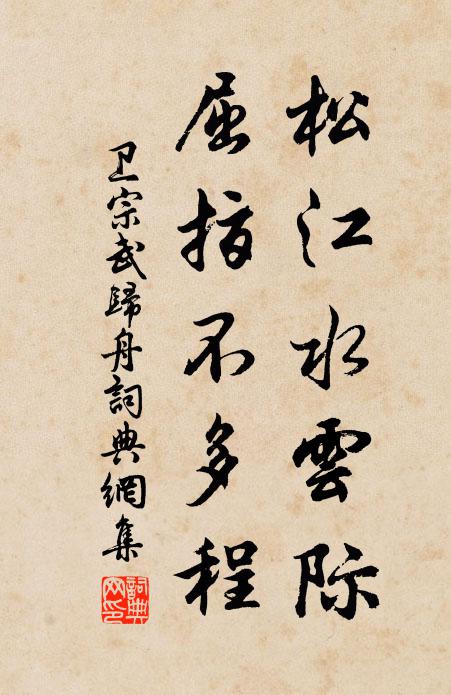 松江水雲际
屈指不多程
卫宗武歸舟詞典網集
詞典网印